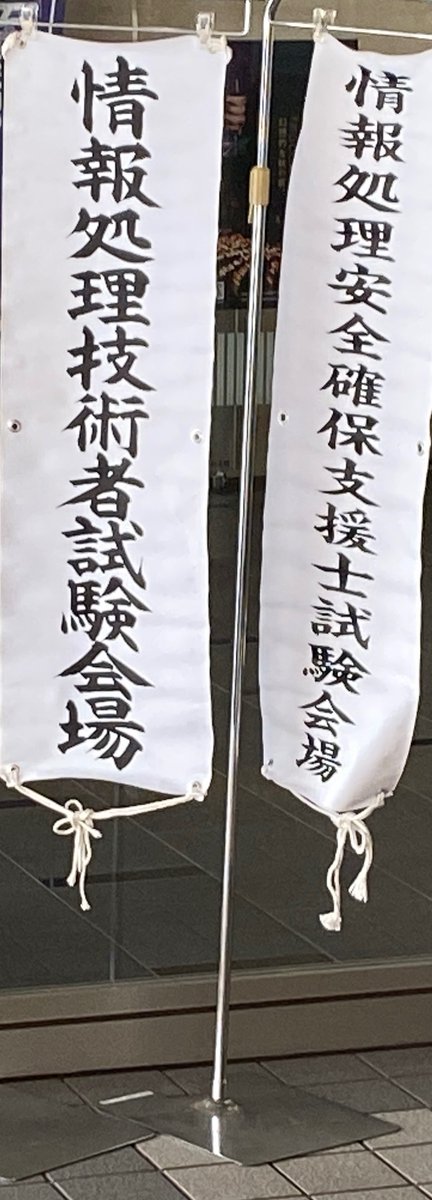 情報処理安全確保支援士試験会場
情報処理技術者試験会場